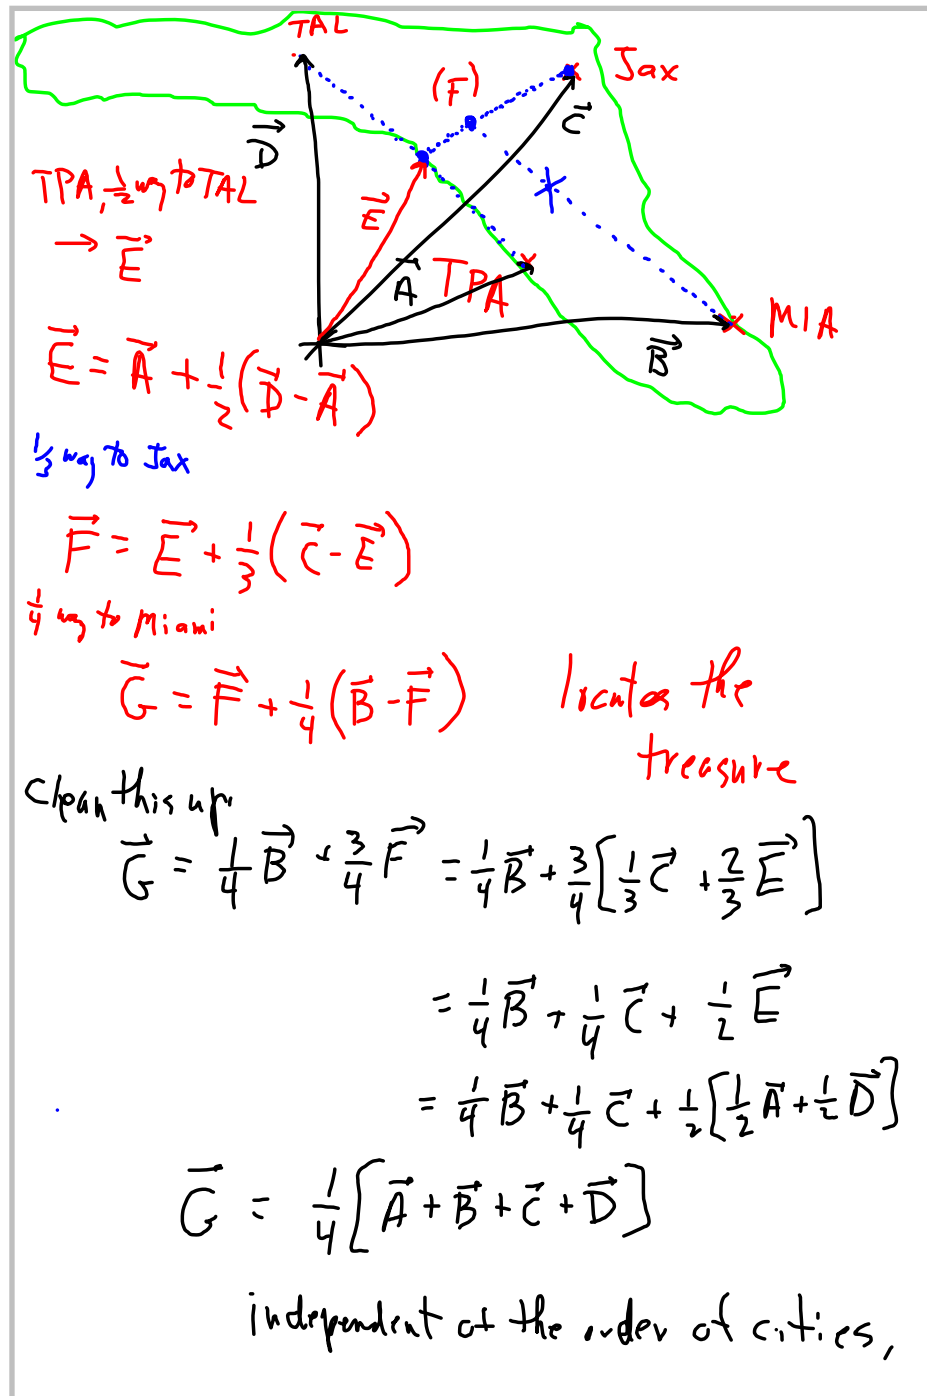 TAL
Jax
(F)
C⃗
D⃗
TPA, 1/2 way to TAL
→ E⃗
E⃗
A⃗
TPA
MIA
B⃗
E⃗ = A⃗ + 1/2 (D⃗ - A⃗)
1/3 way to Jax
F⃗ = E⃗ + 1/3 (C⃗ - E⃗)
1/4 way to Miami
G⃗ = F⃗ + 1/4 (B⃗ - F⃗)
locates the
treasure
Clean this up.
G⃗ = 1/4 B⃗ + 3/4 F⃗ = 1/4 B⃗ + 3/4 [1/3 C⃗ + 2/3 E⃗]
= 1/4 B⃗ + 1/4 C⃗ + 1/2 E⃗
= 1/4 B⃗ + 1/4 C⃗ + 1/2 [1/2 A⃗ + 1/2 D⃗]
G⃗ = 1/4 [A⃗ + B⃗ + C⃗ + D⃗]
independent of the order of cities,